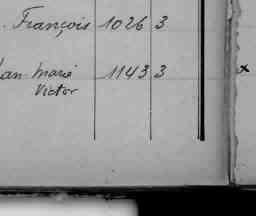 . François 1026 3
an-marie 1143 3 x
Victor